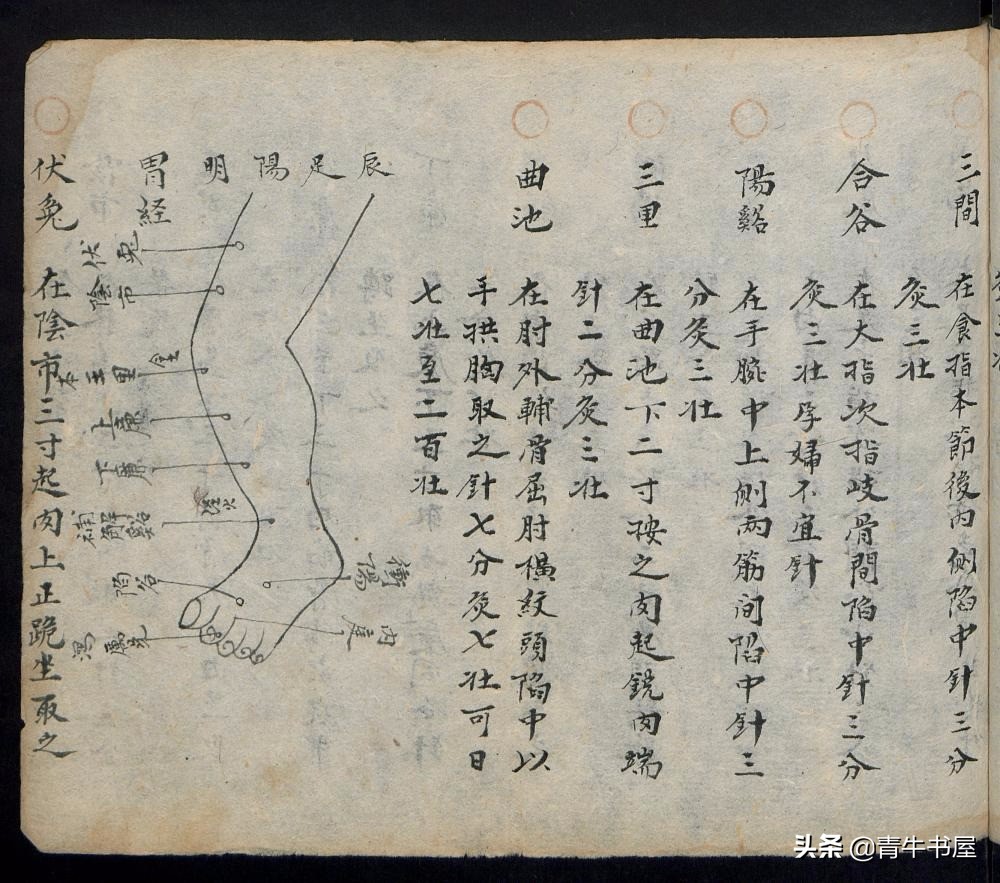 三間
在食指本節後內側陷中針三分
灸三壯
合谷
在大指次指歧骨間陷中針三分
灸三壯孕婦不宜針
陽谿
在手腕中上側兩筋间陷中針三
分灸三壯
三里
在曲池下二寸按之肉起銳肉端
針二分灸三壯
曲池
在肘外輔骨屈肘橫紋頭陷中以
手拱胸取之針七分灸七壯可日
七壯至二百壯
辰足陽明
胃経
伏兔
陰市
三里
上廉
下廉
解谿
陷谷
厲兌
衝陽
内庭
伏兔
在陰市三寸起肉上正跪坐取之
头条 @青牛书屋